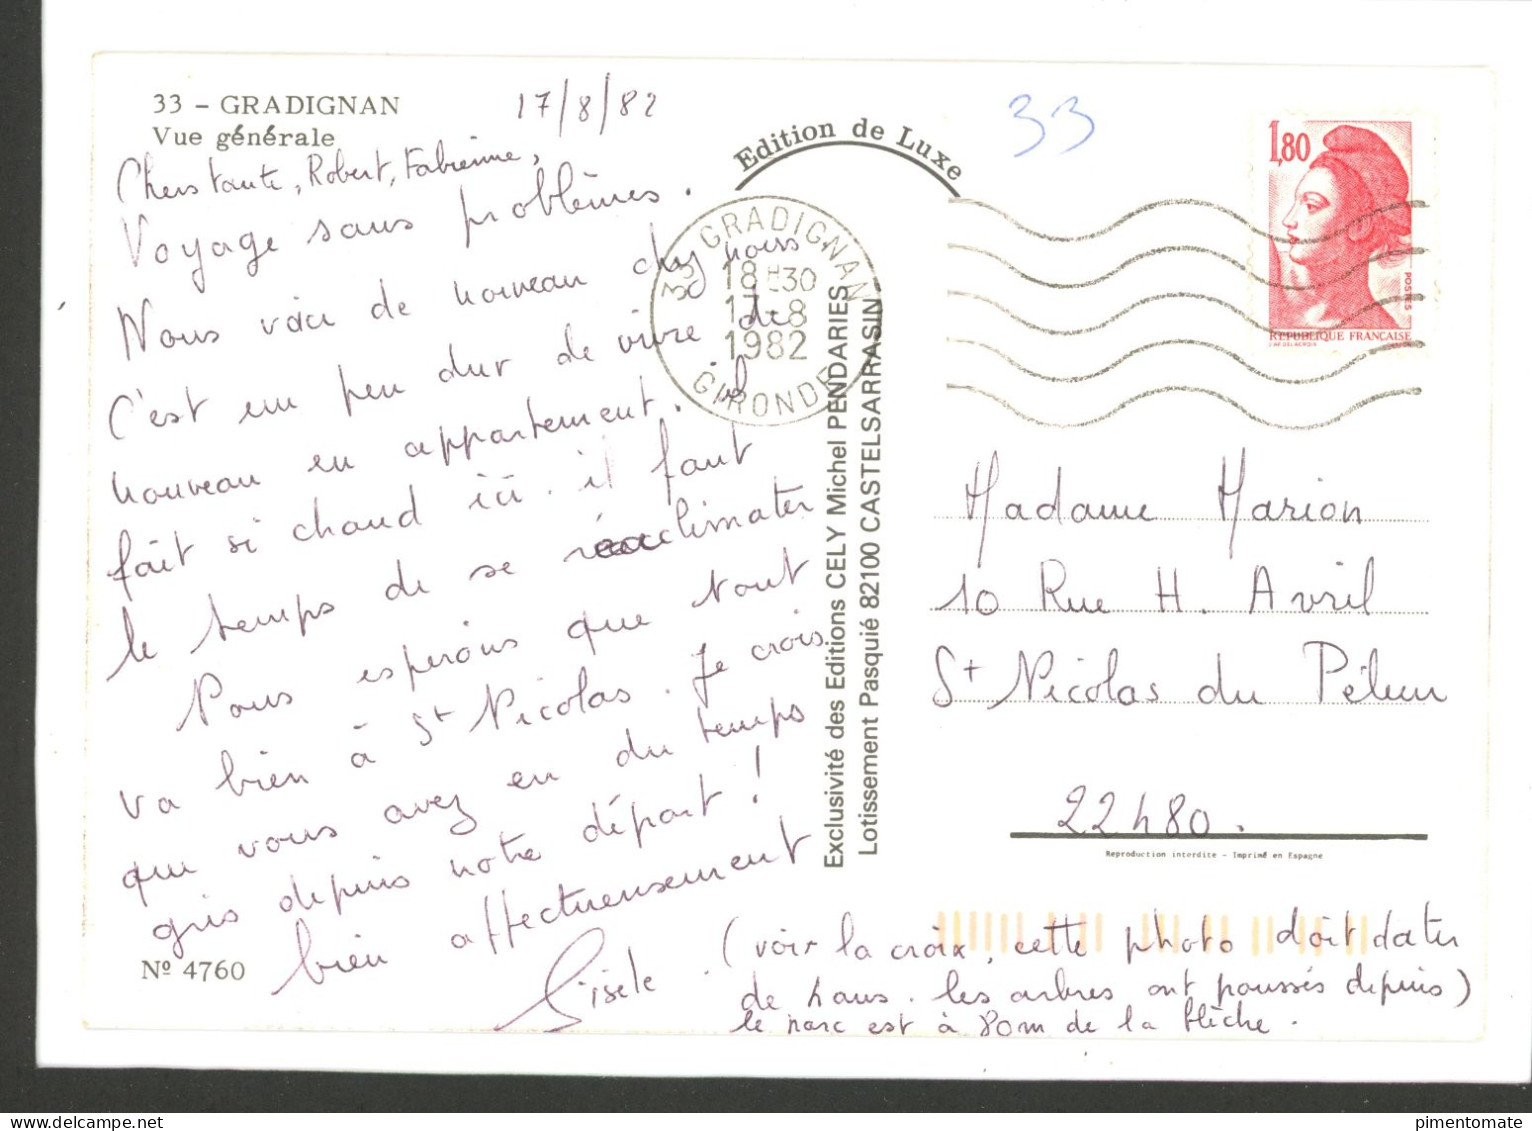 33 - GRADIGNAN
Vue générale
17/8/82
Edition de Luxe
33
1,80
POSTES
REPUBLIQUE FRANÇAISE
33 GRADIGNAN
18H30
17-8
1982
GIRONDE
Tante, Robert, Fabienne,
Voyage sans problèmes.
Nous voici de nouveau chez nous
C'est un peu dur de vivre de
nouveau en appartement. il
fait si chaud ici. il faut
le temps de se réacclimater
Nous espérons que tout
va bien à St Nicolas. Je crois
que vous avez eu du temps
gris depuis notre départ!
bien affectueusement
Gisèle.
Nº 4760
Exclusivité des Editions CELY Michel PENDARIES
Lotissement Pasquié 82100 CASTELSARRASIN
Madame Marion
10 Rue H. Avril
St Nicolas du Pélem
22480.
Reproduction interdite - Imprimé en Espagne
(voir la croix, cette photo doit dater
de 2 ans. les arbres ont poussés depuis)
le parc est à 80m de la flèche.
pimentomate